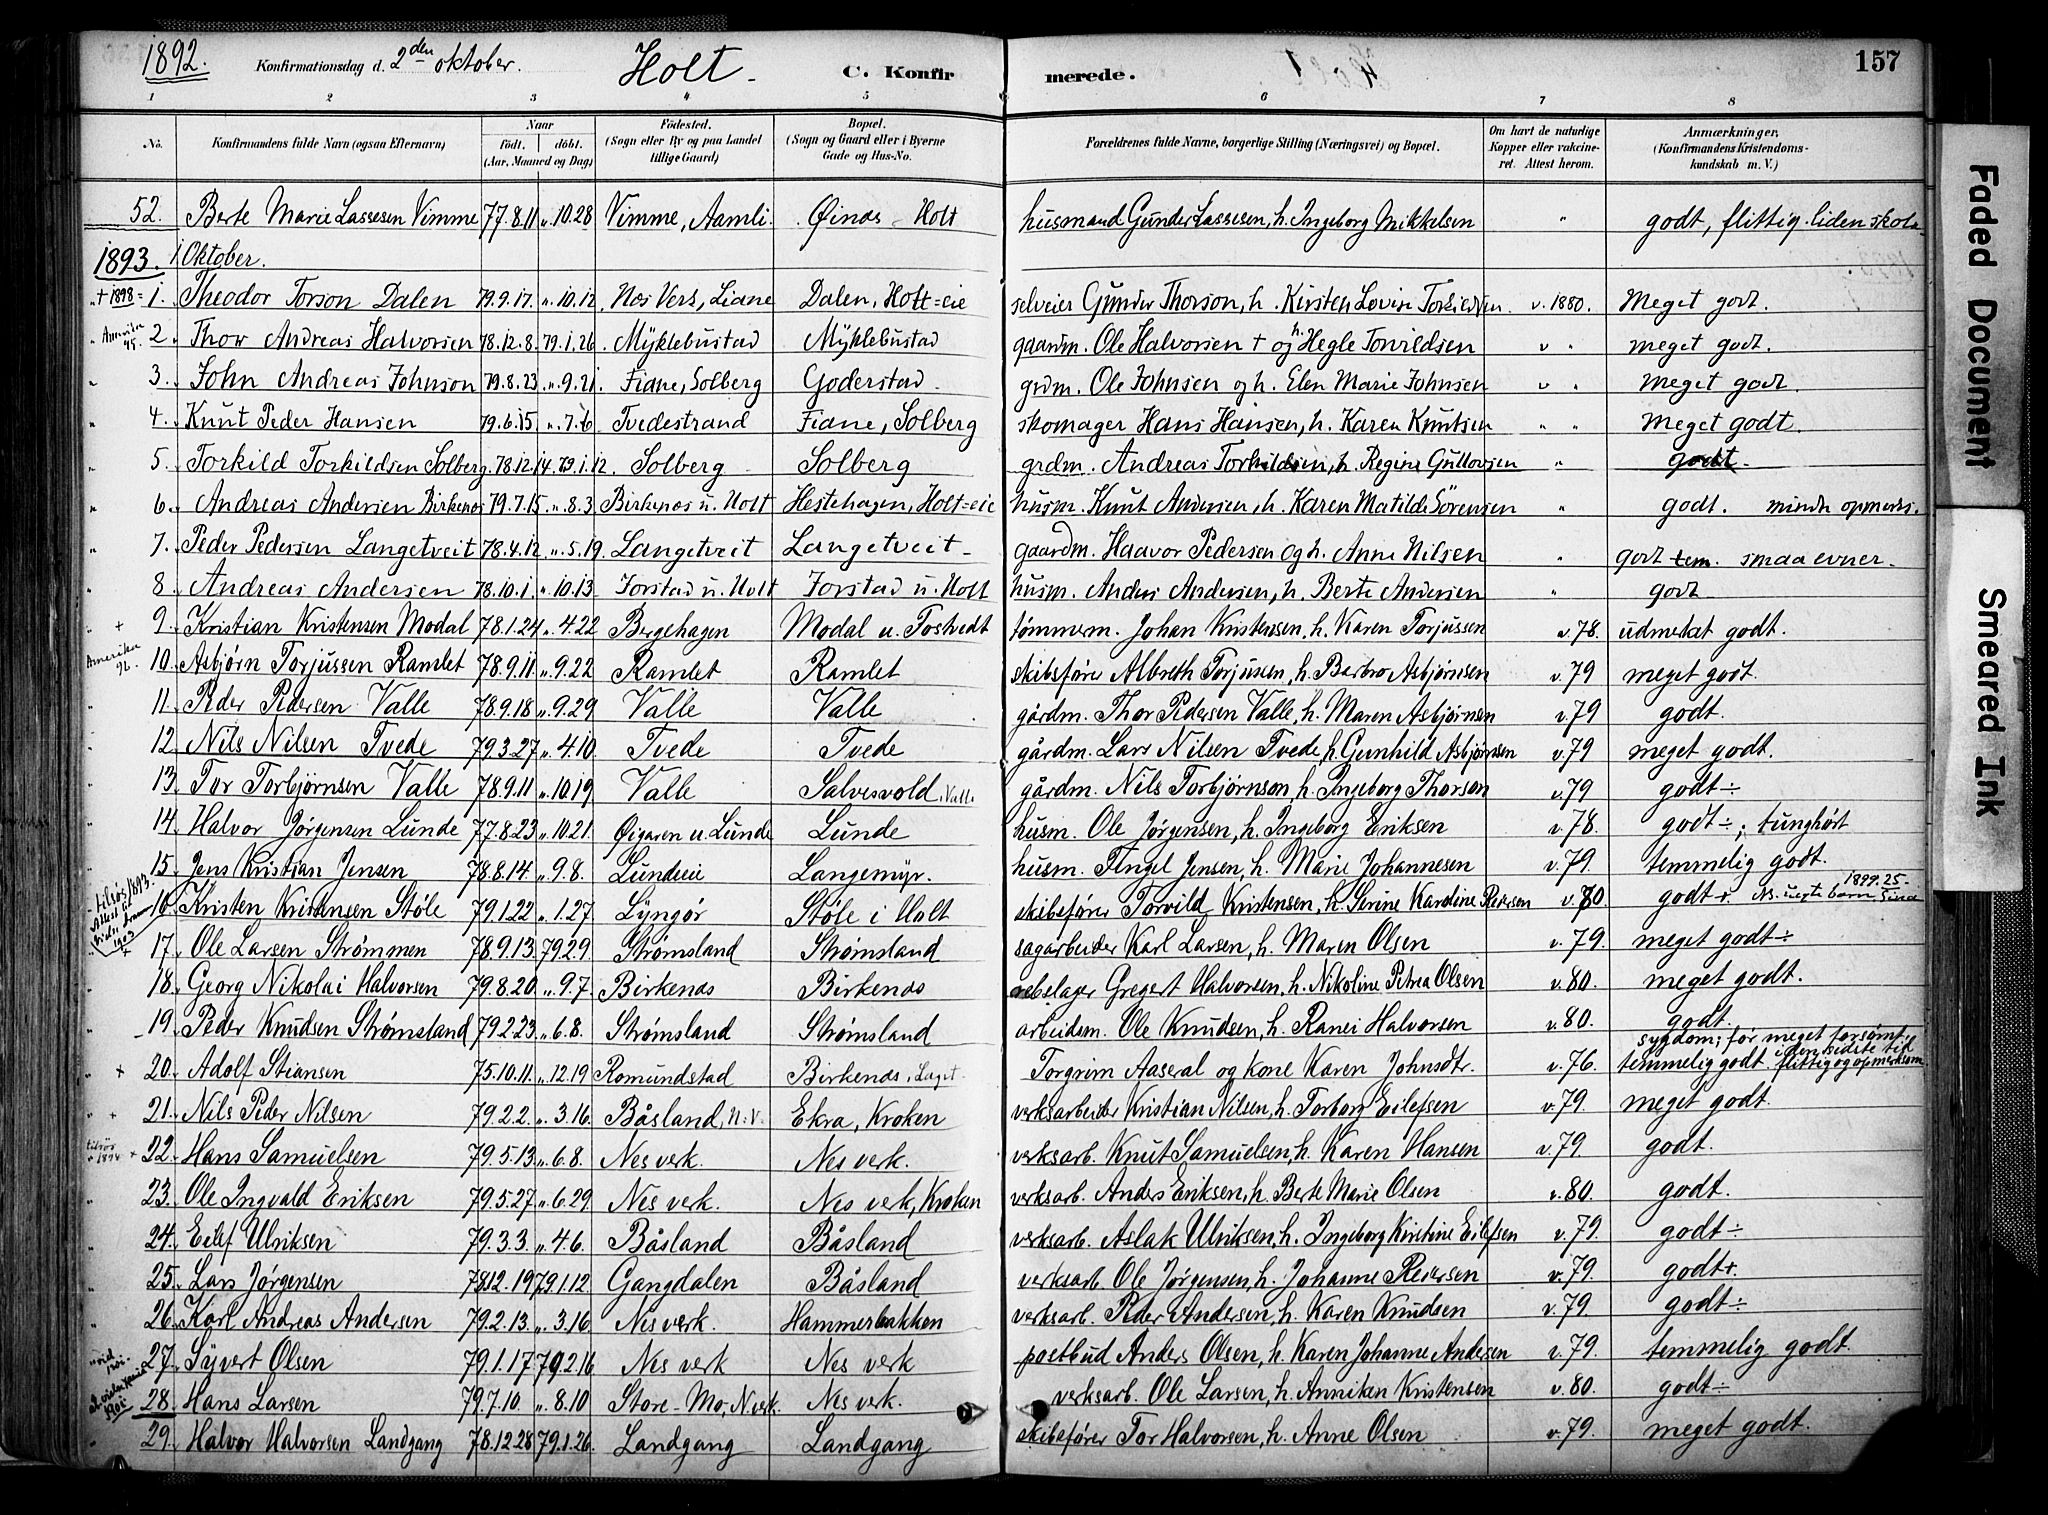 1892. Konfirmationsdag d. 2den oktober. Holt. C. Konfirmerede. 157
1 2 3 4 5 6 7 8
No. Konfirmandens fulde Navn (ogsaa Efternavn) Naar født. døbt. (Aar, Maaned og Dag) Fødested. (Sogn eller By og paa Landet tillige Gaard) Bopæl. (Sogn og Gaard eller i Byerne Gade og Hus-No. Forældrenes fulde Navne, borgerlige Stilling (Næringsvei) og Bopæl. Om havt de naturlige Kopper eller vaccineret. Attest herom. Anmærkninger. (Konfirmandens Kristendomskundskab m. V.)
52. Berte Marie Lassesen Vimme 77.8.11 „ 10.28 Vimme, Aamli. Øinas Holt husmand Gunder Lassesen, h. Ingeborg Mikkelsen „ godt, flittig. liden skole
1893. 1 Oktober.
+ 1898 1. Theodor Torson Dalen 79.9.17. „ 10.12 Nes Verk, Liane Dalen, Holt=eie selveier Gunder Thorson, h. Kirsten Lovise Torkildsen v. 1880. Meget godt.
Amerika 95. 2. Thor Andreas Halvorsen 78.12.8. 79.1.26 Myklebustad Myklebustad gaardm. Ole Halvorsen + og h. Hegle Torvildsen v „ meget godt.
3. John Andreas Johnson 79.8.23 „ 9.21 Fiane, Solberg Goderstad grdm. Ole Johnsen og h. Elen Marie Johnsen v „ meget godt.
4. Knut Peder Hansen 79.6.15. „ 7.6 Tvedestrand Fiane, Solberg skomager Hans Hansen, h. Karen Knutsen „ „ Meget godt.
5. Torkild Torkildsen Solberg. 78.12.14. 79.1.12. Solberg Solberg grdm. Andreas Torkildsen, h. Regine Gullovsen „ godt.
6. Andreas Andersen Birkenes 79.7.15 „ 8.3 Birkenes u. Holt Hestehagen, Holt=eie husm. Knut Andersen, h. Karen Matilde Sörensen „ godt. mindre opmerks.
7. Peder Pedersen Langetveit 78.4.12 „ 5.19 Langetveit Langetveit gaardm. Haavor Pedersen og h. Anne Nilsen „ godt tem. smaa evner.
8 Andreas Andersen 78.10.1. „ 10.13 Forstad u. Holt Forstad u. Holt husm. Anders Andersen, h. Berte Andersen „ godt
+ 9. Kristian Kristensen Modal 78.1.24 „ 4.22 Bergehagen Modal u. Fostvedt tömmerm. Johan Kristensen, h. Karen Torjussen v. 78. udmerket godt.
Amerika 96. 10. Asbjørn Torjussen Ramlet 78.9.11 „ 9.22 Ramlet Ramlet skibsfører Albreth Torjussen, h. Barbro Asbjørnsen v. 79 meget godt.
11. Peder Pedersen Valle 78.9.18 „ 9.29 Valle Valle gårdm. Thor Pedersen Valle, h. Maren Asbjørnsen v. 79 godt.
12. Nils Nilsen Tvede 79.3.27 „ 4.10. Tvede Tvede gårdm. Lars Nilsen Tvede, h. Gunhild Asbjørnsen v. 79 meget godt.
13. Tor Torbjørnsen Valle 78.9.11 „ 10.19 Valle Salvesvold, Valle gårdm. Nils Torbjørnson, h. Ingeborg Thorson v. 79 godt ÷
14. Halvor Jørgensen Lunde 77.8.23 „ 10.21. Øigaren u. Lunde Lunde husm. Ole Jørgensen, h. Ingeborg Eriksen v. 78. godt ÷; tunghørt
15. Jens Kristian Jensen 78.8.14. „ 9.8. Lundeeie Langemyr. husm. Tingel Jensen, h. Marie Johannesen v. 79. temmelig godt.
tilsøs 1893. Attest til 1903 16. Kristen Kristensen Støle 79.1.22 „ 1.27. Lyngør Støle i Holt skibsfører Torvild Kristensen, h. Serine Kardine Reiersen v. 80 godt +. 1899. 25 Ns. uegte barn
+ 17. Ole Larsen Strømmen 78.9.13. 79.2.9. Strømsland Strømsland sagarbeider Karl Larsen, h. Maren Olsen v. 79. meget godt ÷
18. Georg Nikolai Halvorsen 79.8.20. „ 9.7. Birkenes Birkenes rebslager Gregert Halvorsen, h. Nikoline Petrea Olsen v. 80. meget godt.
19. Peder Knudsen Strømsland 79.2.23 „ 6.8. Strømsland Strømsland arbeidsm. Ole Knudsen, h. Ranei Halvorsen v. 80. godt.
+ 20. Adolf Stiansen 75.10.11. „ 12.19 Romundstad Birkenes, Laget. Torgrim Aaseral og kone Karen Johnsdtr. v. 76 temmelig godt sygdom; før meget forsømt. i den sidste tid flittig og opmerksom
+ 21. Nils Peder Nilsen 79.2.2. „ 3.16. Båsland, N.V. Ekra, Kroken verksarbeider Kristian Nilsen, h. Torborg Eilefsen v. 79. meget godt.
tilsør 1894 + 22. Hans Samuelsen 79.5.13 „ 6.8. Nes verk. Nes verk. verksarb. Knut Samuelsen, h. Karen Hansen v. 79 godt.
23. Ole Ingvald Eriksen 79.5.27 „ 6.29. Nes verk. Nes verk, Kroken verksarb. Anders Eriksen, h. Berte Marie Olsen v. 80. godt.
24. Eilef Ulriksen 79.3.3. „ 4.6. Båsland Båsland verksarb. Aslak Ulriksen, h. Ingeborg Kirstine Eilefsen v. 79. godt ÷
25. Lars Jørgensen 78.12.19 79.1.12. Gangdalen Båsland verksarb. Ole Jørgensen, h. Johanne Reiersen v. 79. godt +.
26. Karl Andreas Andersen 79.2.13. „ 3.16. Nes verk. Hammerbakken verksarb. Peder Andersen, h. Karen Knudsen v. 79. godt ÷
27. Syvert Olsen 79.1.17. 79.2.16 Nes verk Nes verk postbud Anders Olsen, h. Karen Johanne Andersen v. 79. temmelig godt.
1901 28. Hans Larsen 79.7.10. „ 8.10 Store-Mo, N.verk. Nes verk. verksarb. Ole Larsen, h. Anniken Kristensen v. 80. godt ÷
29. Halvor Halvorsen Landgang 78.12.28 79.1.26. Landgang Landgang skibsfører Tor Halvorsen, h. Anne Olsen v. 79. meget godt.
Faded Document
Smeared Ink